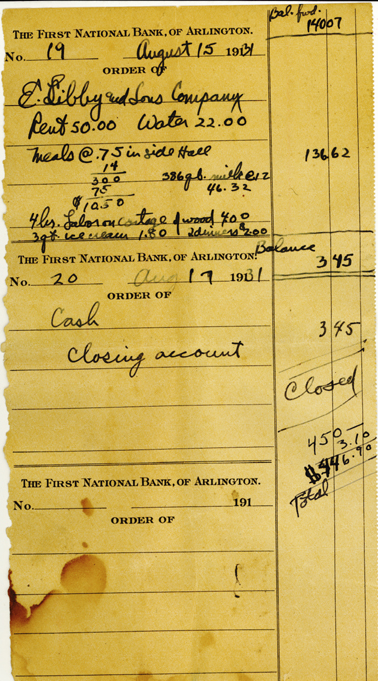 Bal. fwd.
14007
THE FIRST NATIONAL BANK, OF ARLINGTON.
No. 19 August 15 1931
ORDER OF
E. Libby and Sons Company
Rent 50.00 Water 22.00
Meals @ .75 in side Hall
14
300
75
$10.50
386 qt. milk @ 12
46.32
13662
4 hrs. Labor on cartage of wood 4.00
3 qt. ice cream 1.80 2 dinners 2.00
Balance
THE FIRST NATIONAL BANK, OF ARLINGTON.
3 45
No. 20 Aug 17 1931
ORDER OF
Cash
3 45
Closing account
Closed
450 —
3.10
$446.90
Total
THE FIRST NATIONAL BANK, OF ARLINGTON.
No. 191
ORDER OF